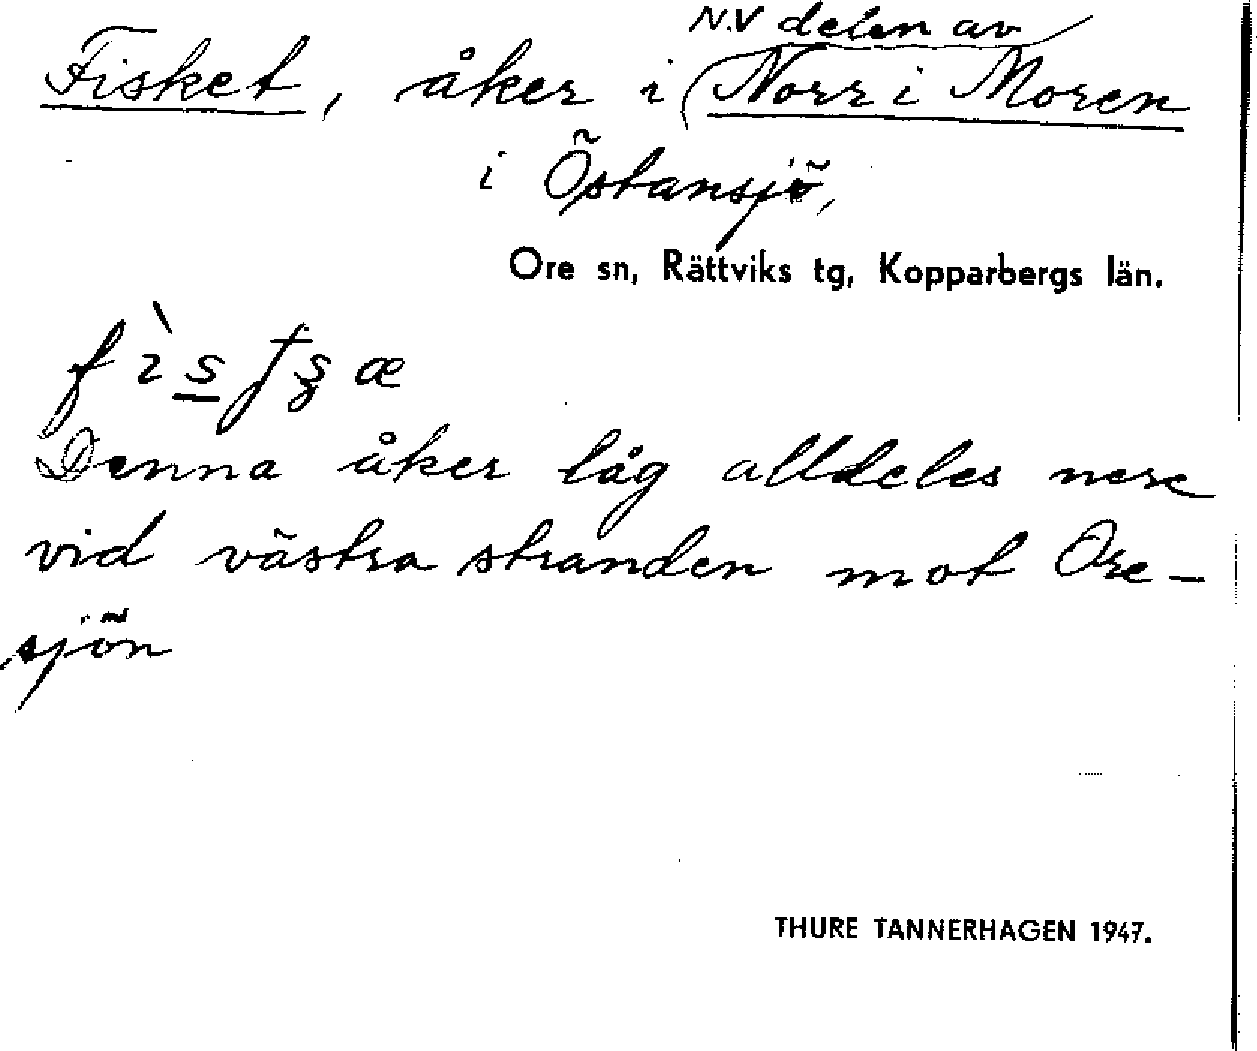 N.V delen av
Fisket, åker i Norr i Moren
i Östansjö,
Ore sn, Rättviks tg, Kopparbergs län.
Denna åker låg alldeles nere
vid västra stranden mot Ore-
sjön
THURE TANNERHAGEN 1947.